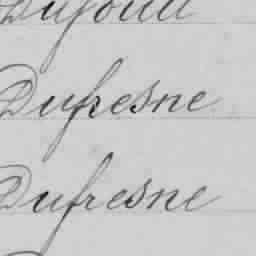 Dufresne
Dufresne